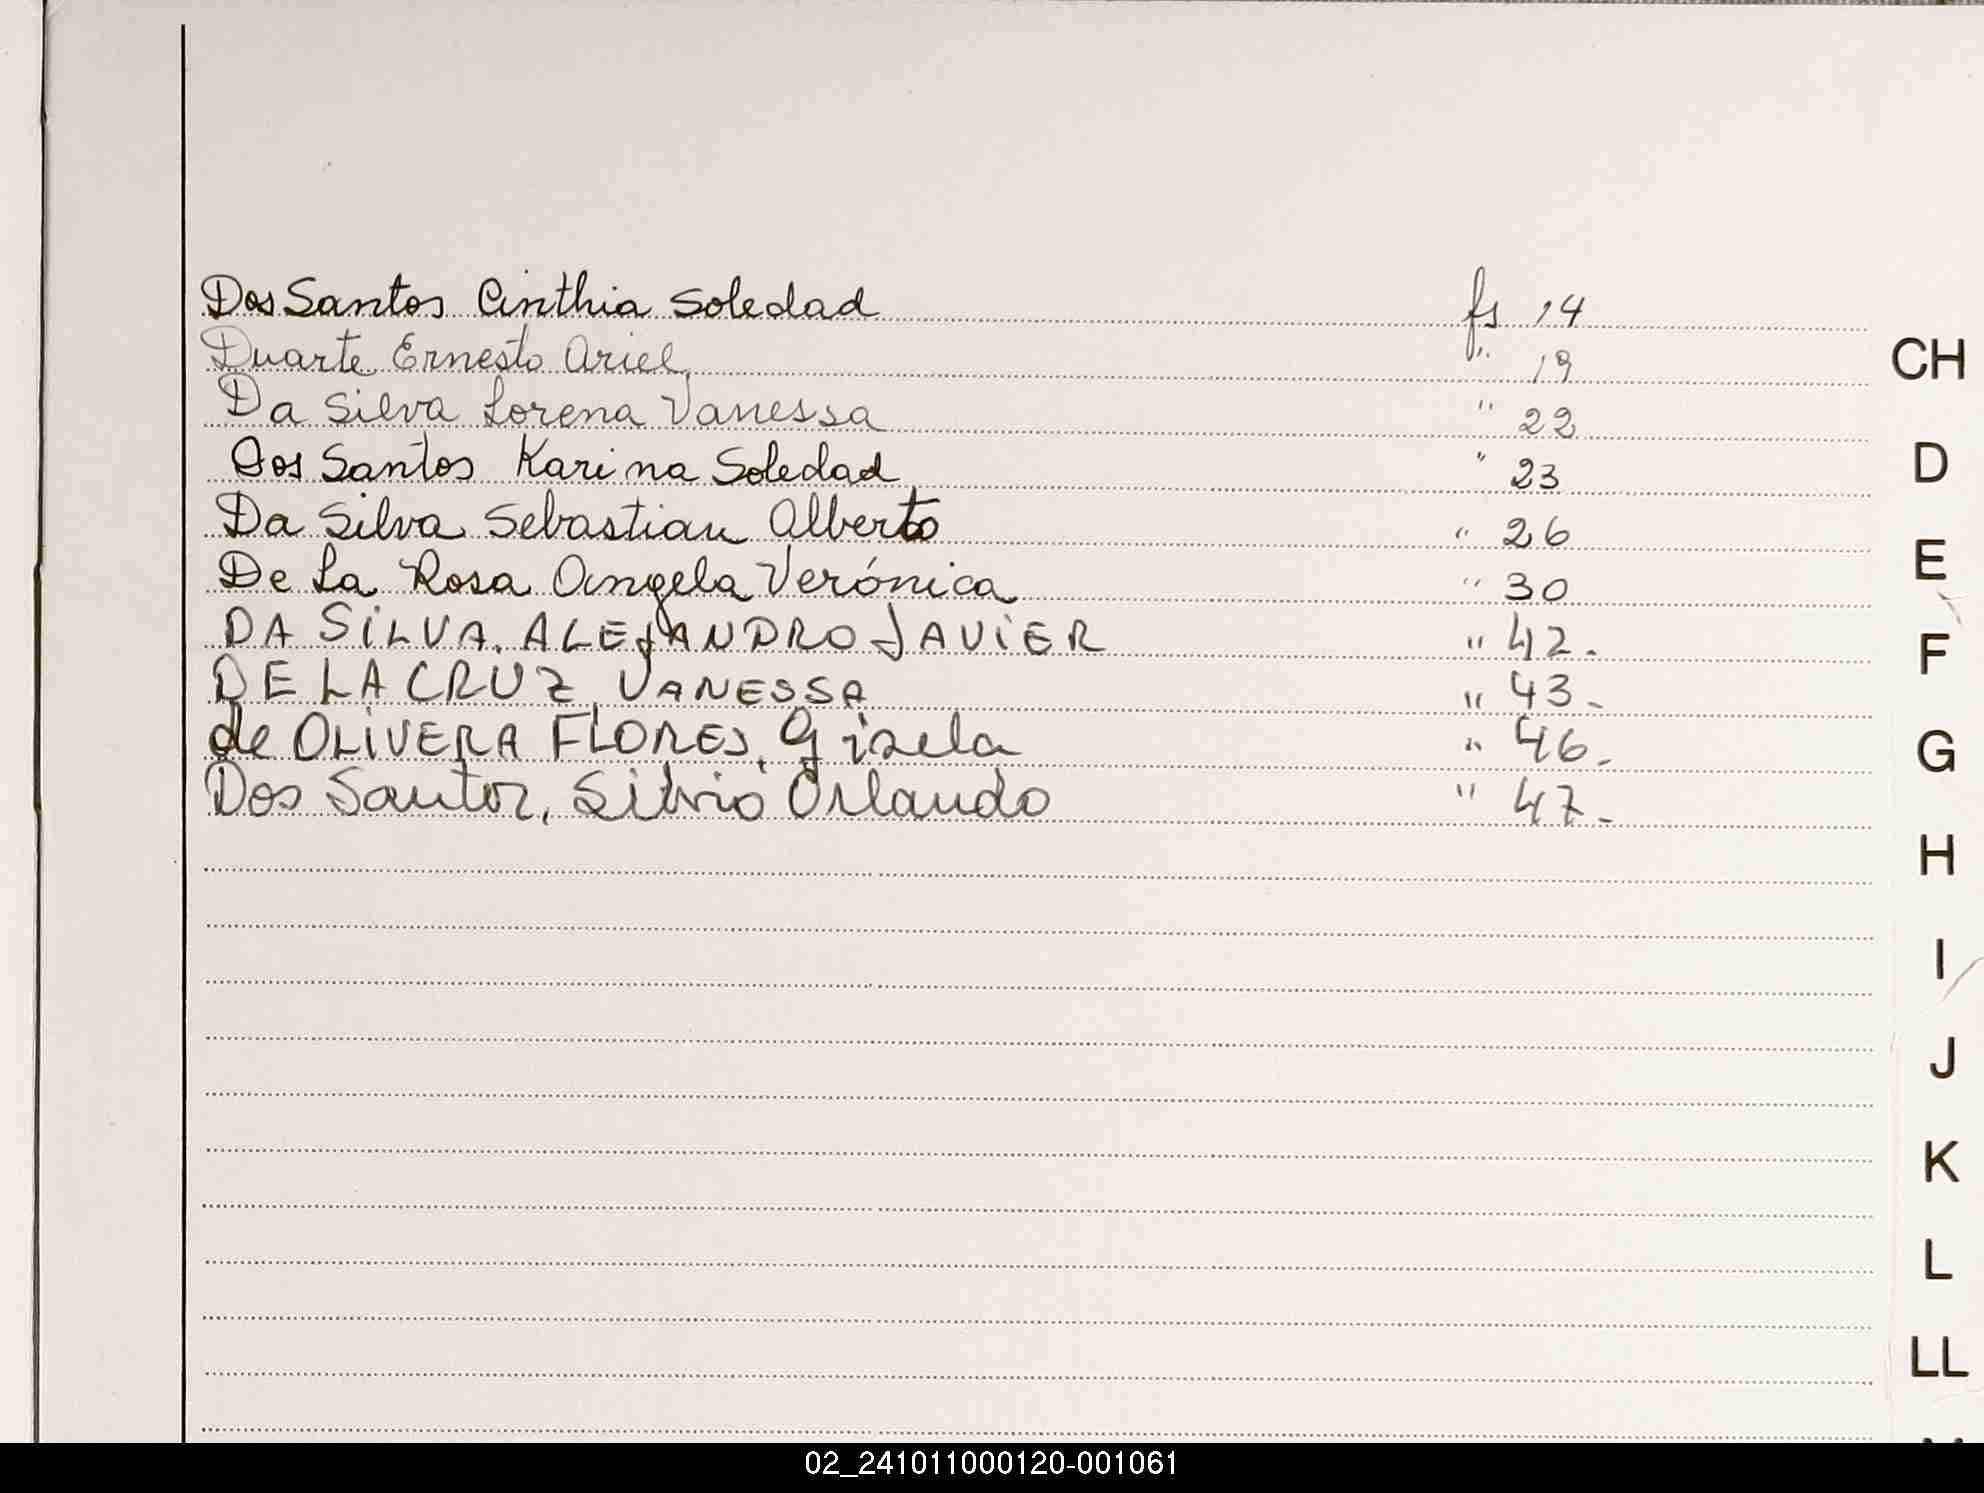 Dos Santos Cinthia Soledad fs 14
Duarte Ernesto Ariel " 19
Da Silva Lorena Vanessa " 22
Dos Santos Karina Soledad " 23
Da Silva Sebastian Alberto " 26
De La Rosa Angela Verónica " 30
DA SILVA, ALEJANDRO JAVIER " 42.
DE LA CRUZ, VANESSA " 43.
de OLIVERA FLORES, Gisela " 46.
Dos Santos, Silvio Orlando " 47.
CH
D
E
F
G
H
I
J
K
L
LL
02_241011000120-001061